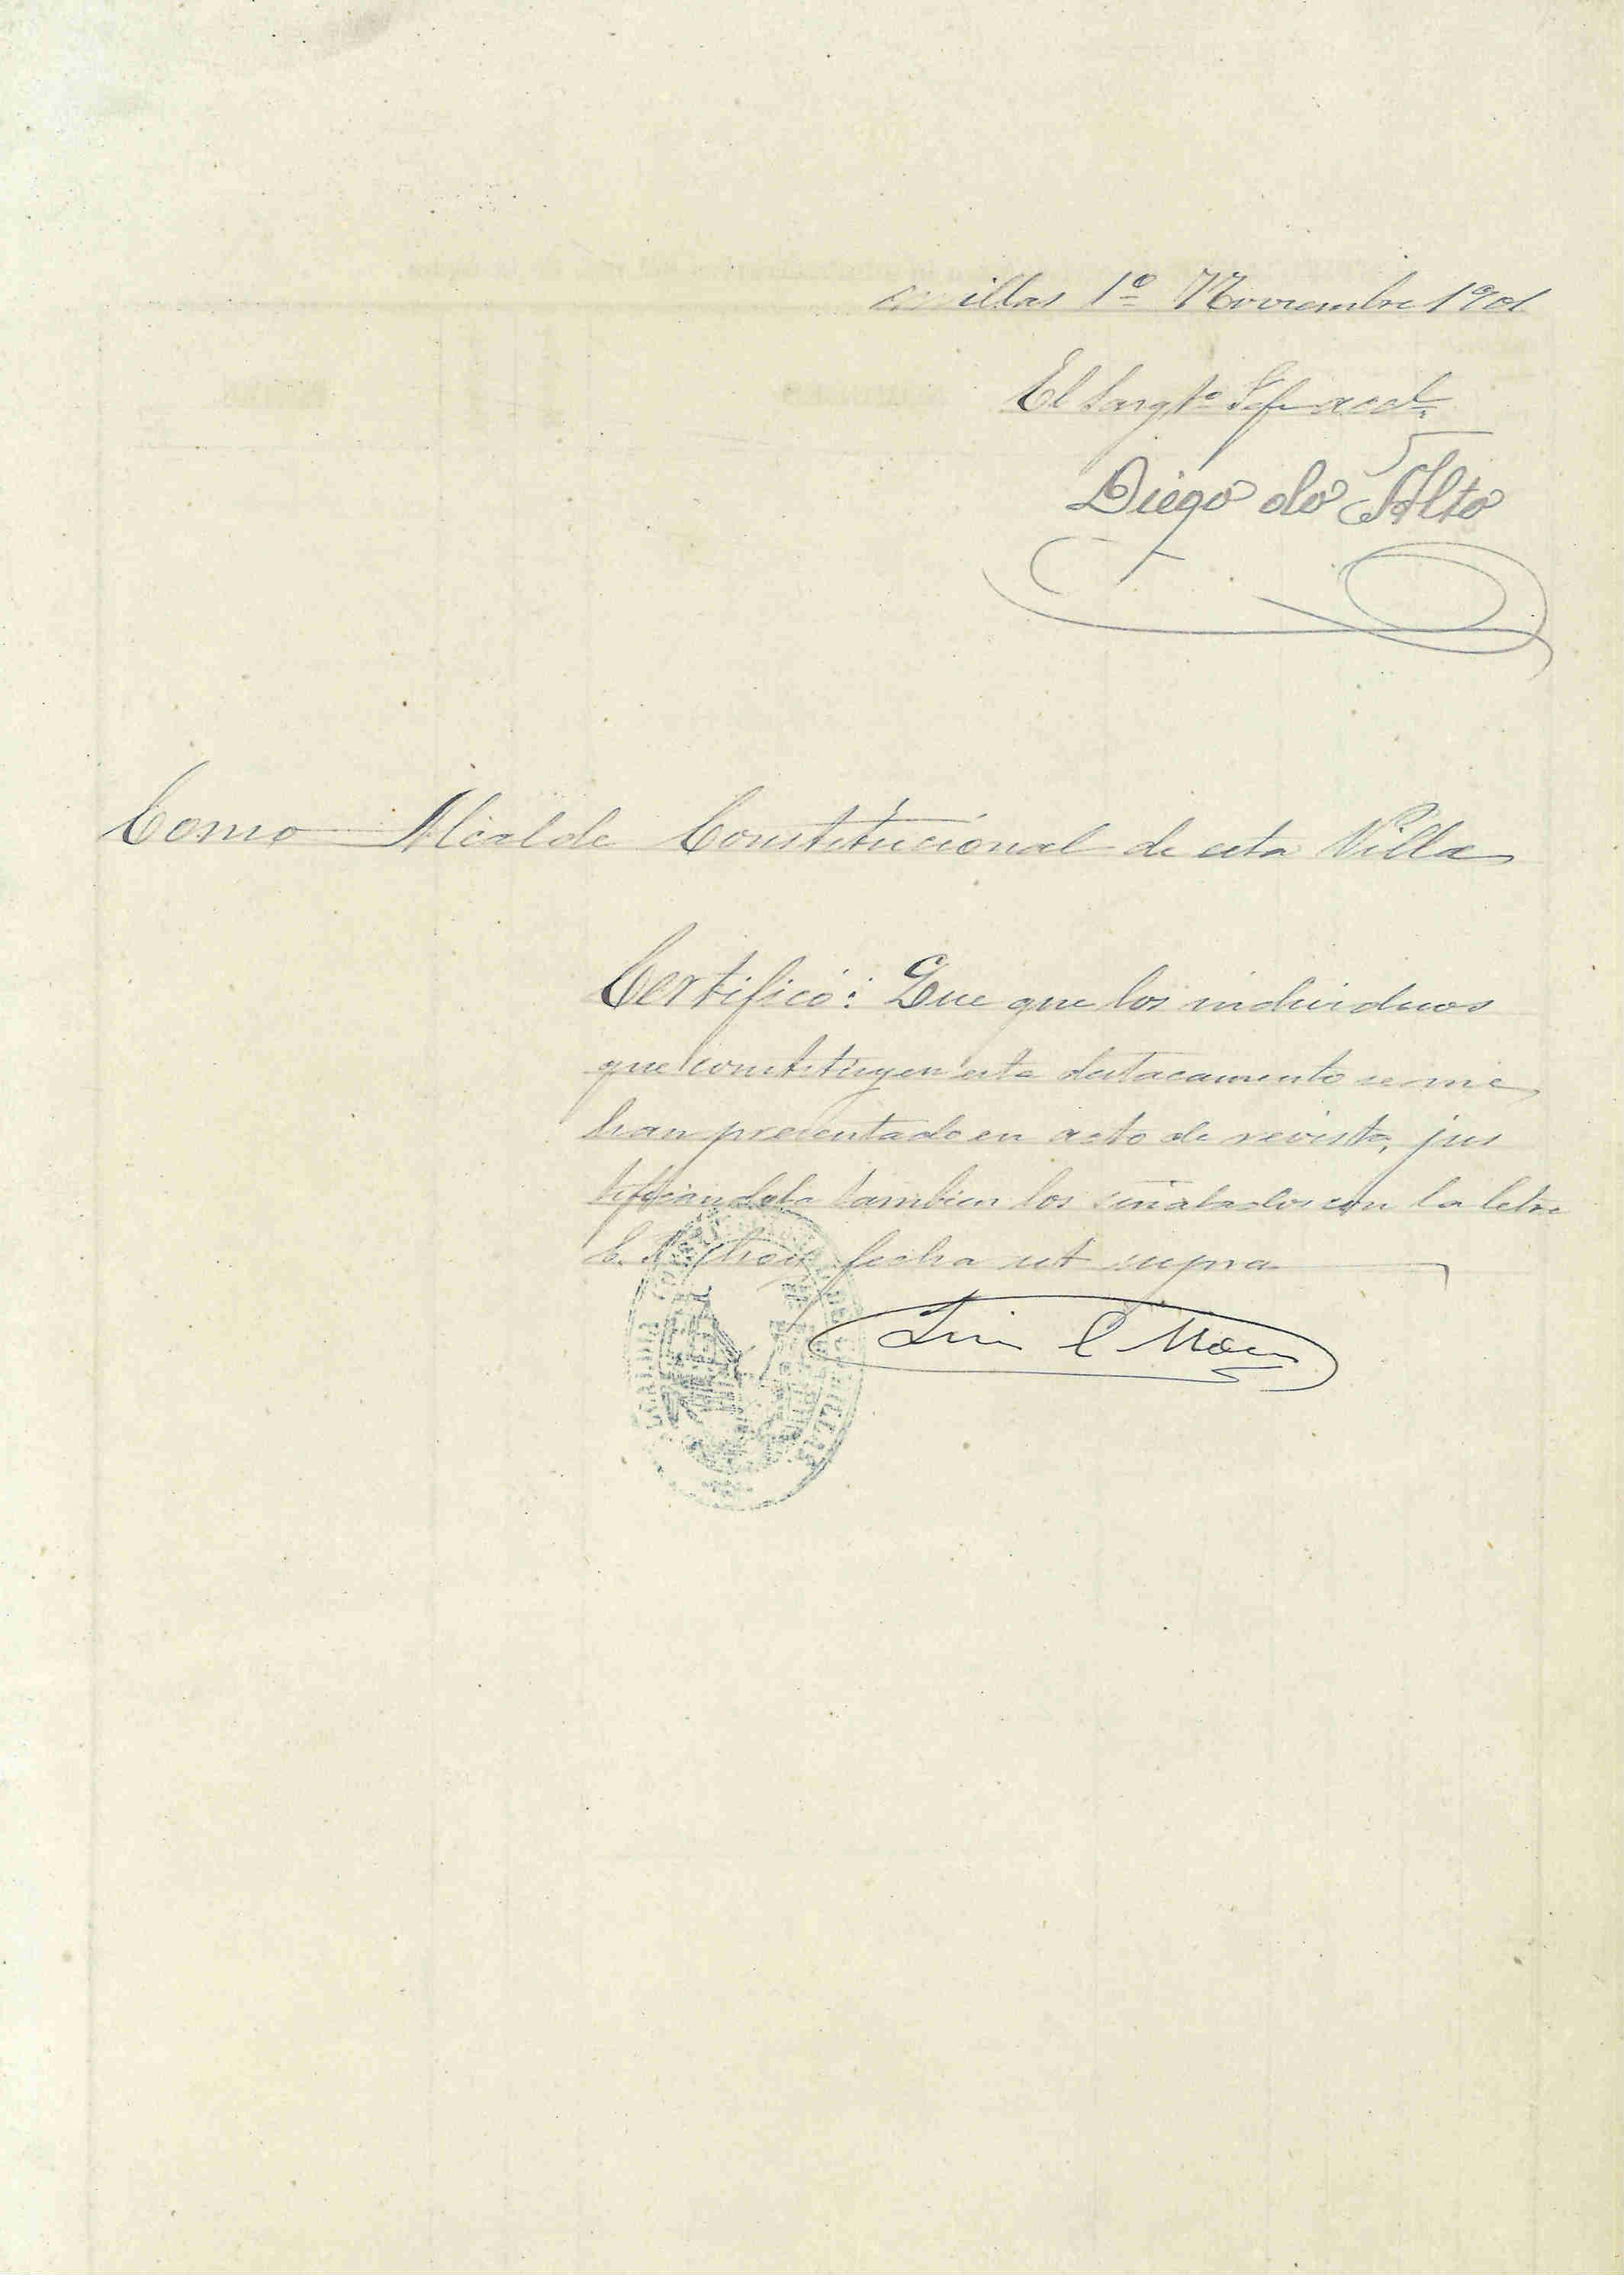 illas 1º Noviembre 1901
El Sargtº Jefe accal
Diego do Alto
Como Alcalde Constitucional de esta Villa
Certifico: Que que los individuos
que constituyen este destacamento se me
han presentado en acto de revista, jus
tificandola tambien los señalados con la letra
hoy fecha ut supra